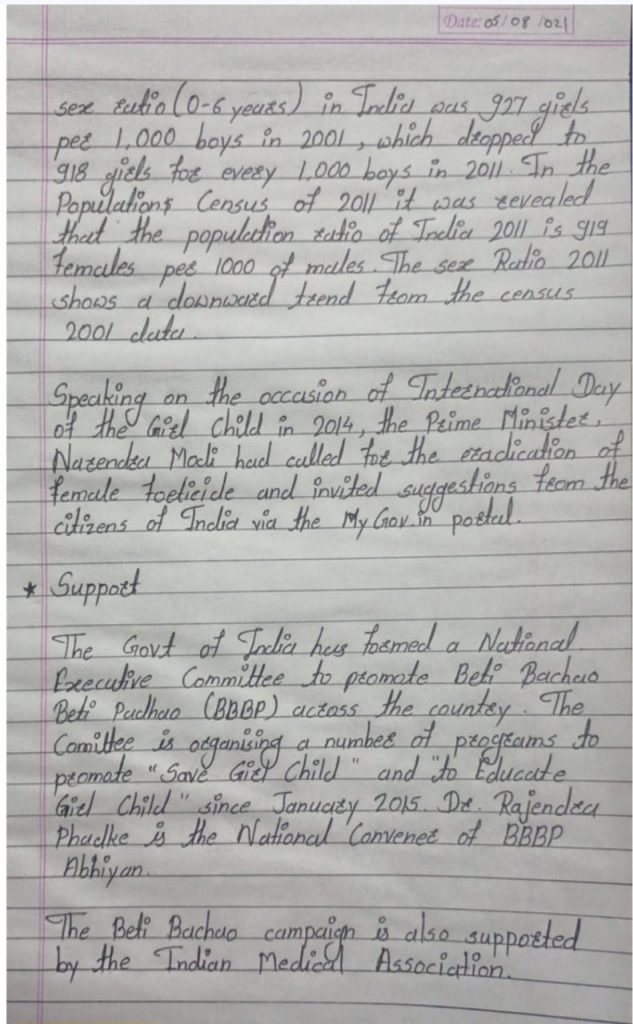 Date: 05/08/021
sex ratio (0-6 years) in India was 927 girls
per 1,000 boys in 2001, which dropped to
918 girls for every 1,000 boys in 2011. In the
Populations Census of 2011 it was revealed
that the population ratio of India 2011 is 919
females per 1000 of males. The sex Ratio 2011
shows a downward trend from the census
2001 data.
Speaking on the occasion of International Day
of the Girl Child in 2014, the Prime Minister,
Narendra Modi had called for the eradication of
female foeticide and invited suggestions from the
citizens of India via the MyGov.in portal.
* Support
The Govt of India has formed a National
Executive Committee to promote Beti Bachao
Beti Padhao (BBBP) across the country. The
Comittee is organising a number of programs to
promate "Save Girl Child" and "to Educate
Girl Child" since January 2015. Dr. Rajendra
Phadke is the National Convener of BBBP
Abhiyan.
The Beti Bachao campaign is also supported
by the Indian Medical Association.